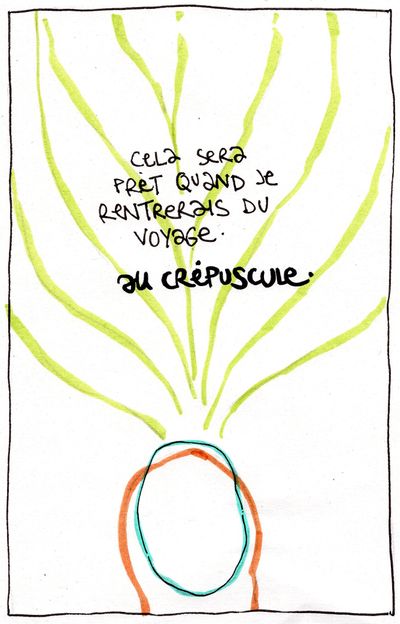 CELA SERA
PRÊT QUAND JE
RENTRERAIS DU
VOYAGE.
AU CRÉPUSCULE.